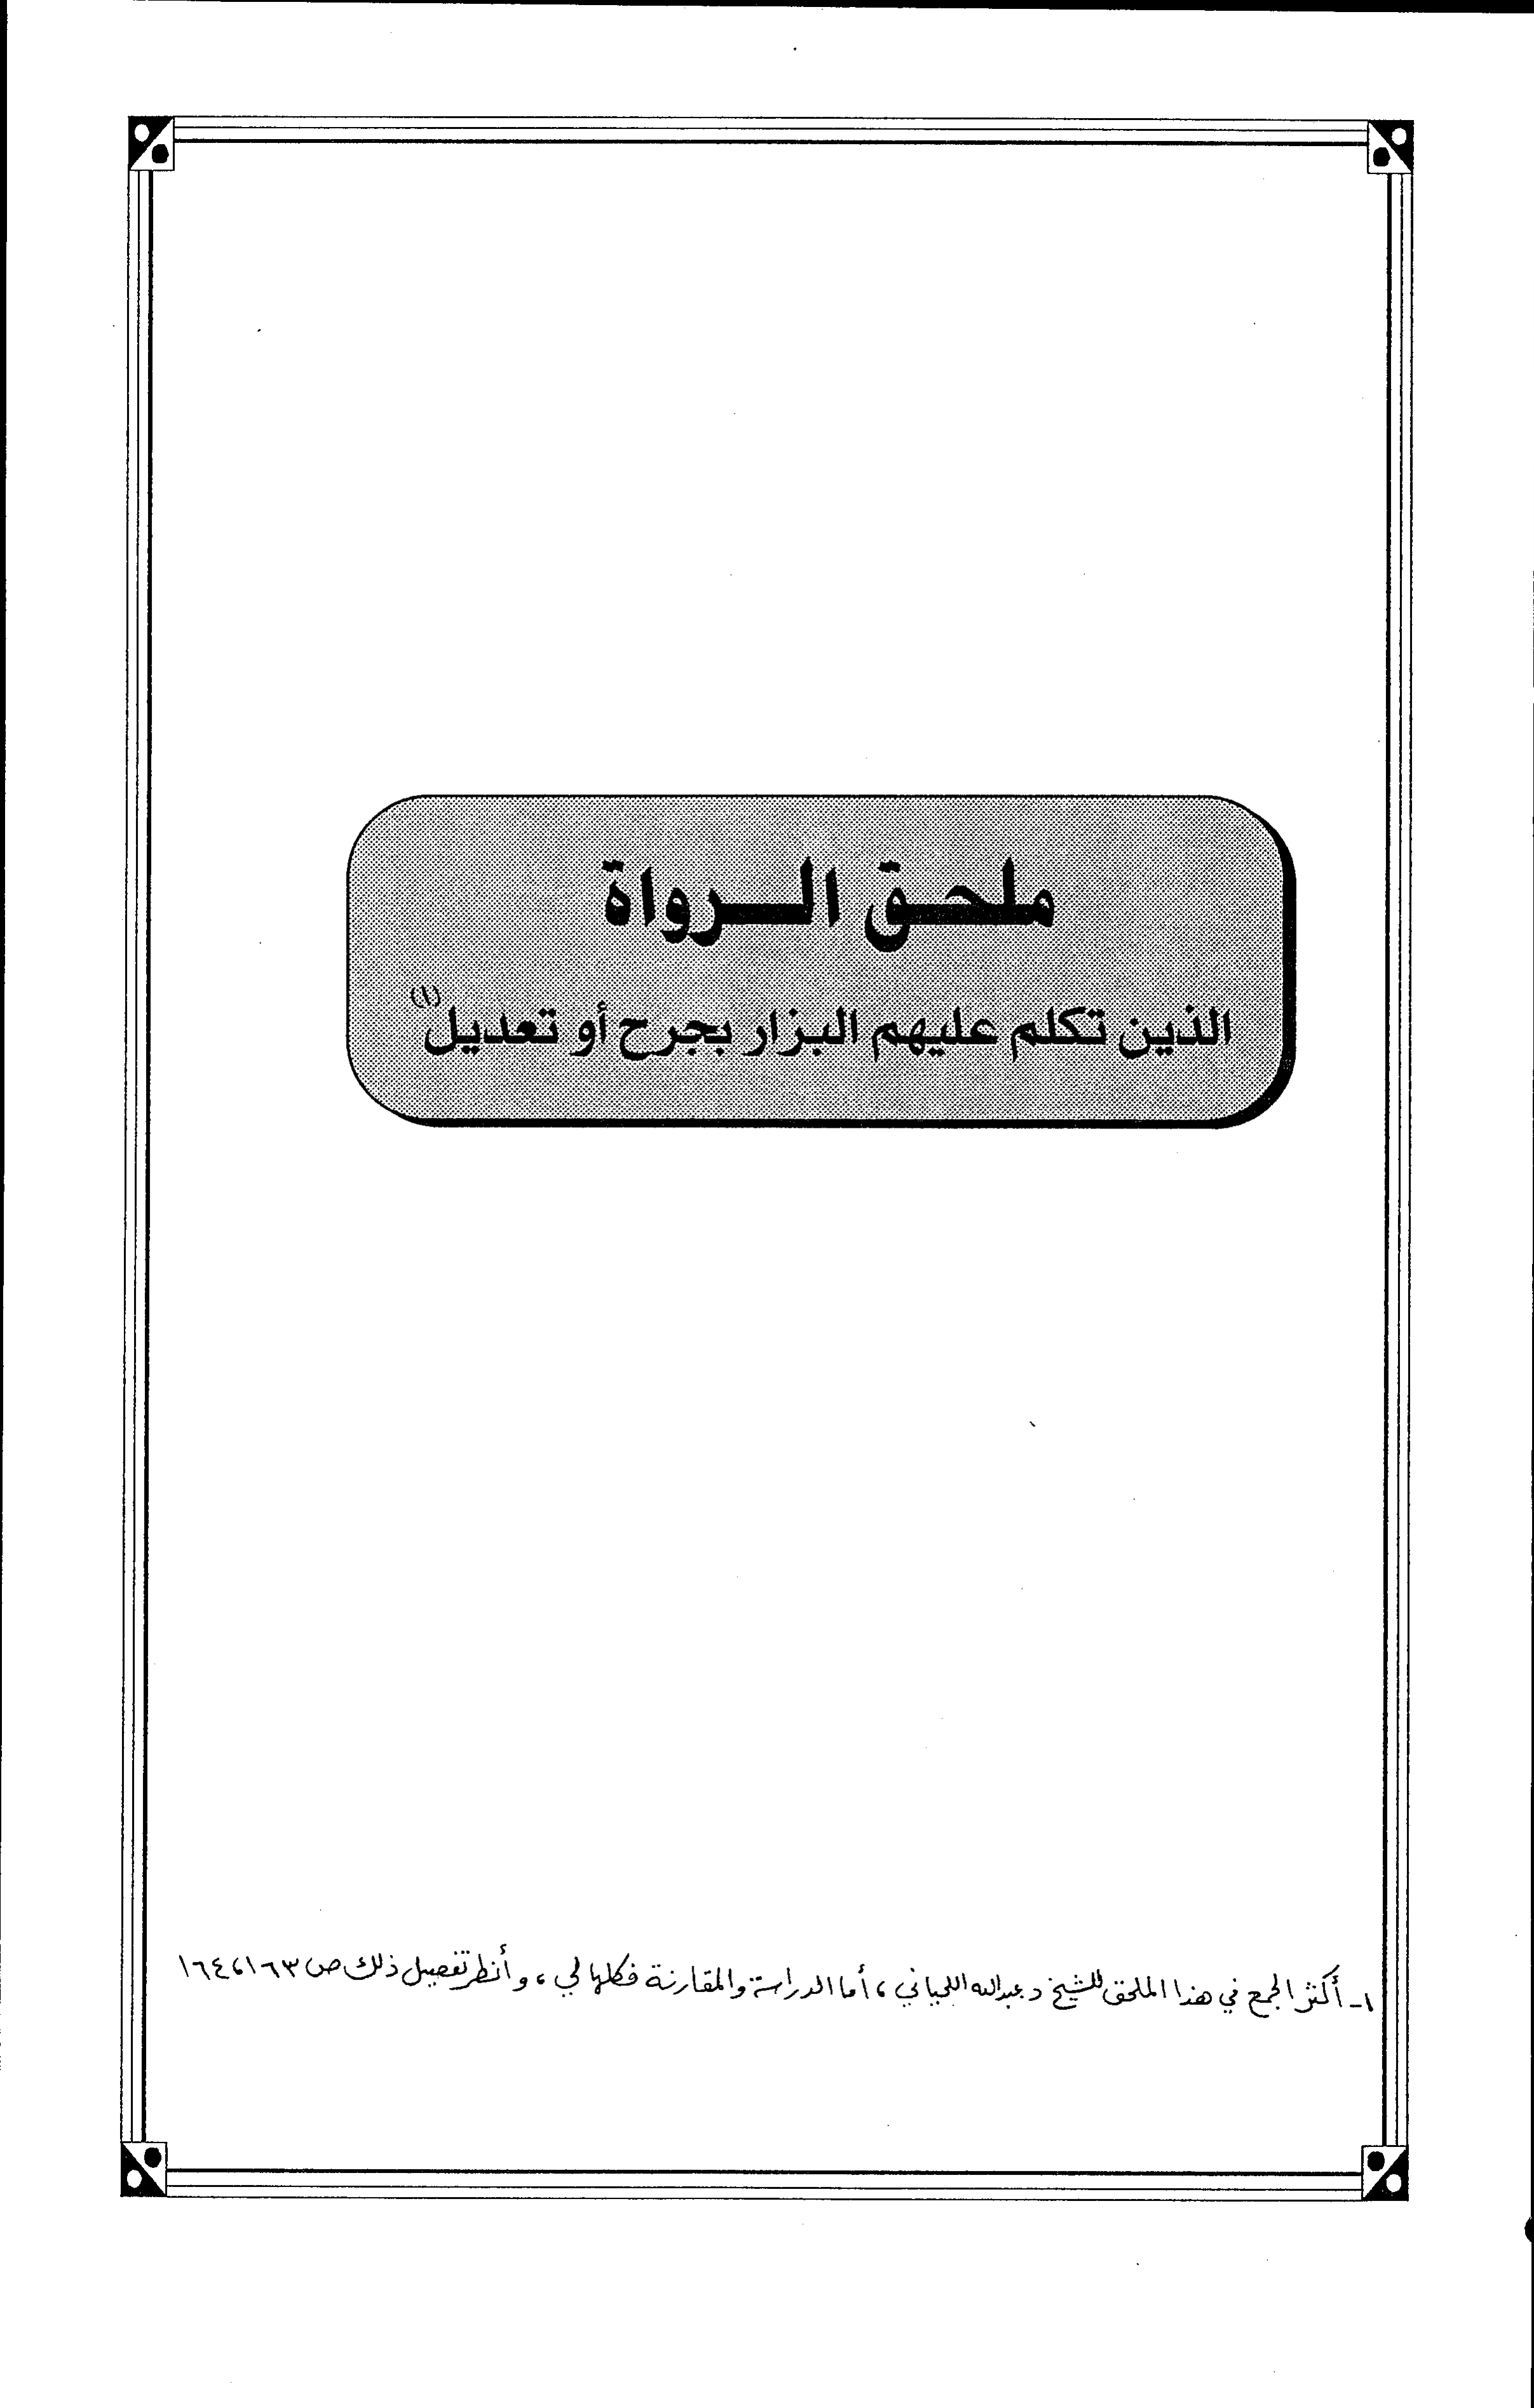 ملحق الرواة
الذين تكلم عليهم البزار بجرح أو تعديل (١)
١- أكثر الجمع في هذا الملحق للشيخ د عبدالله اللحياني ، أما الدراسة والمقارنة فكلها لي ، وأنظر تفصيل ذلك ص ١٦٣ ، ١٦٤